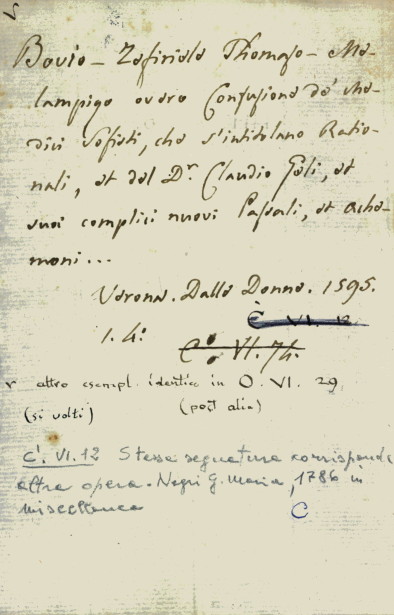 Bovio - Zefiriele Thomaso - Me-
lampigo overo Confusione de' me-
dici Sofisti, che s'intitolano Ratio-
nali, et del Dr. Claudio Geli, et
suoi complici nuovi Passali, et Ache-
moni...
Verona. Dalle Donne. 1595.
C VI. 12
1. 4°
C° VI. 74.
v altro esempl. identico in O. VI. 29
(si volti) (post alia)
C'. VI. 12 Stessa segnatura corrisponde
altra opera. Negri G. Maria, 1786 in
miscellanea
C